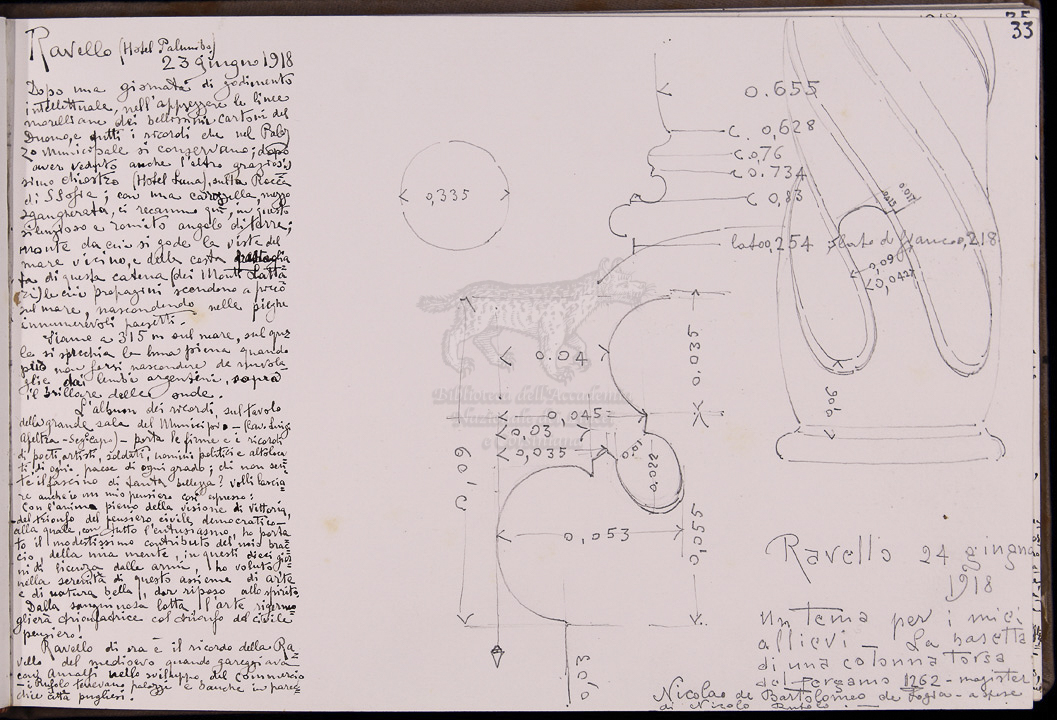 Ravello (Hotel Palumbo)
23 giugno 1918
Dopo una giornata di godimento
intellettuale, nell'apprezzare le linee
morelliane dei bellissimi cartoni del
Duomo, e tutti i ricordi che nel Palaz
zo Municipale si conservano; dopo
aver veduto anche l'altro grazios
simo chiostro (Hotel Luna), sulla Rocca
di S Sofia; con una carozzella, mezzo
sgangherata, ci recammo qui, in questo
silenzioso e romito angolo di terra;
monte da cui si gode la vista del
mare vicino, e della costa
ta di questa catena (dei Monti Latta
ri) le cui propagini scendono a picco
sul mare, nascondendo nelle pieghe
innumerevoli paesetti.-
Siamo a 315 m sul mare, sul qua
le si specchia la luna piena quando
può non farsi nascondere da nuvola
glie dai lembi argentini, sopra
il brillare delle onde.
L'album dei ricordi, sul tavolo
della grande sala del Municipio - (Cav. Luigi
- porta le firme e i ricordi
di poeti, artisti, soldati, uomini politici e altoloca
ti, di ogni paese di ogni grado; chi non sen
te il fascino di tanta bellezza? Volli lascia
re anche io un mio pensiero così espresso:
Con l'anima pieno della visione di vittoria,
del trionfo del pensiero civile democratico
alla quale, con tutto l'entusiasmo, ho porta
to il modestissimo contributo del mio brac
cio, della mia mente, in questi dieci gior
ni di licenza dalle armi, ho voluto
nella serenità di questo assieme di arte
e di natura bella, dar riposo allo spirito
Dalla sanguinosa lotta, l'arte rigermo
glierà trionfatrice col trionfo del civile
pensiero.
Ravello di ora è il ricordo della Ra
vello del medioevo quando gareggiava
con Amalfi nello sviluppo del commercio
- i Rufolo tenevano palazzi e banche in parec
chie città pugliesi.
33
0.655
0,628
0,76
0.734
0,83
0,335
lato 0,254
lato di fianco 0,218
0,013
0,017
0,09
0,0427
0,04
0.035
0,045
0,03
0,035
0,01
0,022
0,09
0,053
0,055
0,33
Biblioteca dell'Accademia
Ravello 24 giugno
1918
Un tema per i miei
allievi - La basetta
di una colonna torsa
del pergamo 1262 - magister
Nicolao de Bartolomeo de Fogia - a spese
di Nicolò Rufolo.